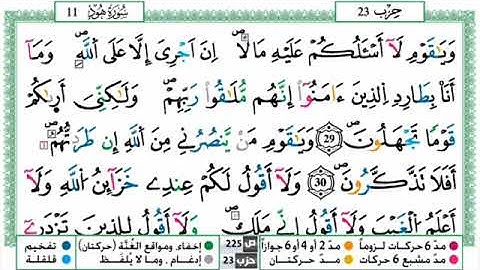 سُورَةُ هُودٍ 11
حِزْب 23
وَيَٰقَوْمِ لَآ أَسْـَٔلُكُمْ عَلَيْهِ مَالًا إِنْ أَجْرِيَ إِلَّا عَلَى اَللَّهِ وَمَآ
أَنَا بِطَارِدِ اِلذِينَ ءَامَنُوٓاْ إِنَّهُم مُّلَٰقُواْ رَبِّهِمْ وَلَٰكِنِّيَ أَر۪ىٰكُمْ
قَوْمًا تَجْهَلُونَ 29 وَيَٰقَوْمِ مَنْ يَّنصُرُنِے مِنَ اَللَّهِ إِن طَرَدتُّهُمُۥٓ
أَفَلَا تَذَّكَّرُونَ 30 وَلَآ أَقُولُ لَكُمْ عِندِے خَزَآئِنُ اُللَّهِ وَلَآ
أَعْلَمُ اُلْغَيْبَ وَلَآ أَقُولُ إِنِّے مَلَكٌ وَلَآ أَقُولُ لِلذِينَ تَزْدَرِےٓ
مدّ 6 حركات لزوماً مدّ 2 أو 4 أو 6 جوازاً ص 225 إخفاء ومواقع الغُنَّة (حركتان) تفخيم
مدّ مشبع 6 حركات مدّ حركتان حزب 23 إدغام ، وما لا يُلفَظ قلقلة